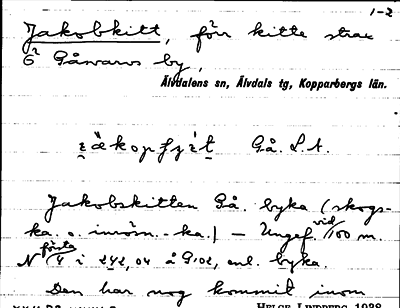 1-2
Jakobkitt, förr kitte strax
ö Gåsvarvs by,
Älvdalens sn, Älvdals tg, Kopparbergs län.
Gå. L.A.
Jakobskitten Gå. byka (skogs-
ka. o. inröm.-ka.) – Ungef. vid 100 m.
N första 4 i 242,04 å G:02, enl. byka.
Den har nog kommit inom
HELGE LINDBERG 1938